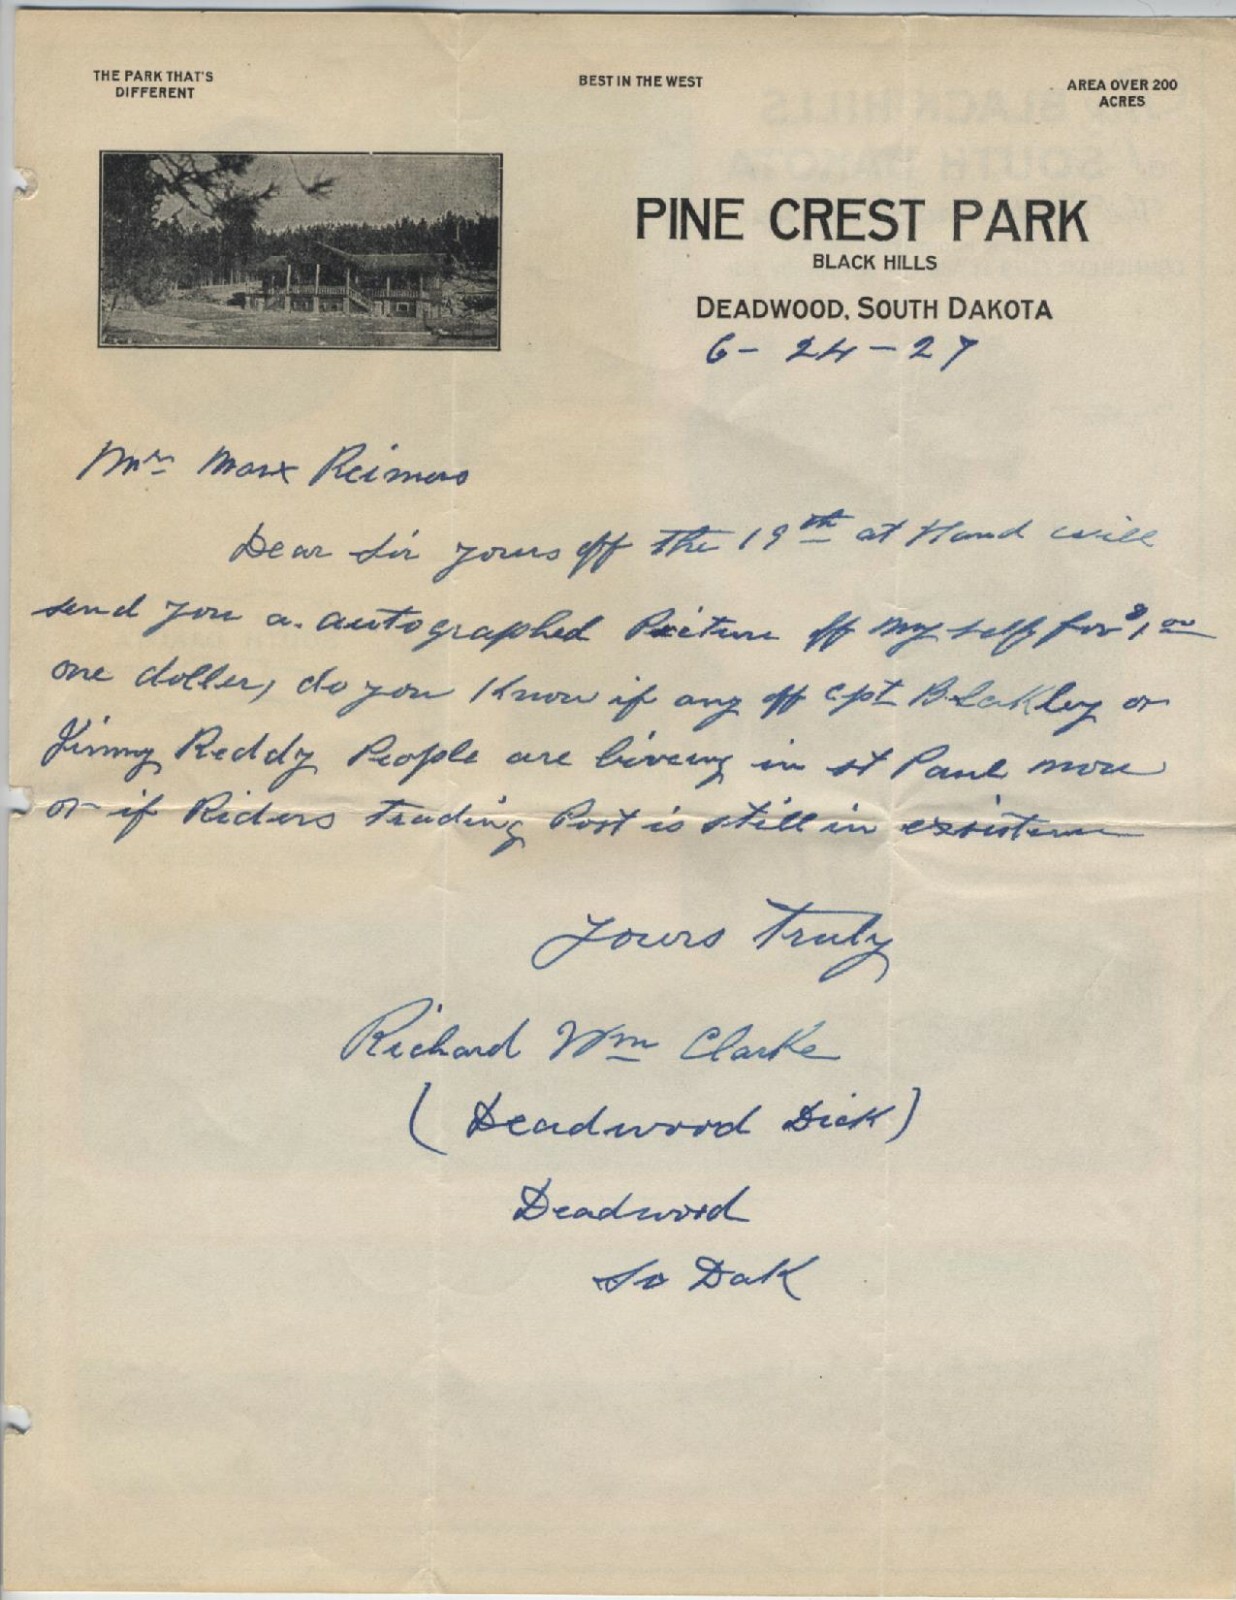 THE PARK THAT'S
DIFFERENT
BEST IN THE WEST
AREA OVER 200
ACRES
PINE CREST PARK
BLACK HILLS
DEADWOOD, SOUTH DAKOTA
6- 24-27
Mr Marx Reimers
Dear Sir yours off the 19th at Hand will
send you a. autographed Picture off my self for $1.00
one doller, do you Know if any off cpt Blakley or
Jimmy Reddy People are living in st Paul more
or if Riders trading Post is still in
Yours Truly
Richard Wm Clarke
(Deadwood Dick)
Deadwood
So Dak
BLACK HILLS
SOUTH DAKOTA